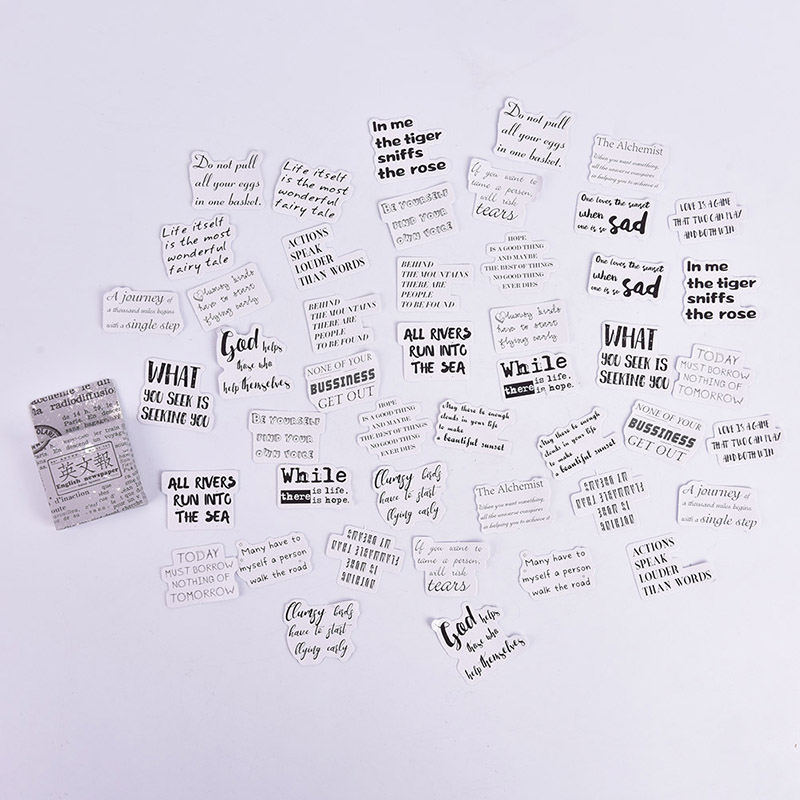 In me
the tiger
sniffs
the rose
Do not pull
all your eggs
in one basket.
The Alchemist
When you want something,
all the universe conspires
in helping you to achieve it
Do not pull
all your eggs
in one basket.
Life itself
is the most
wonderful
fairy tale
If you want to
tame a person,
will risk
tears
BE YOURSELF
FIND YOUR
OWN VOICE
One loves the sunset
when
one is so sad
LOVE IS A GAME
THAT TWO CAN PLAY
AND BOTH WIN
Life itself
is the most
wonderful
fairy tale
ACTIONS
SPEAK
LOUDER
THAN WORDS
HOPE
IS A GOOD THING
AND MAYBE
THE BEST OF THINGS
NO GOOD THING
EVER DIES
BEHIND
THE MOUNTAINS
THERE ARE
PEOPLE
TO BE FOUND
One loves the sunset
when
one is so sad
In me
the tiger
sniffs
the rose
A journey of
a thousand miles begins
with a single step
Clumsy birds
have to start
flying early
BEHIND
THE MOUNTAINS
THERE ARE
PEOPLE
TO BE FOUND
Clumsy birds
have to start
flying early
God helps
those who
help themselves
ALL RIVERS
RUN INTO
THE SEA
WHAT
YOU SEEK IS
SEEKING YOU
TODAY
MUST BORROW
NOTHING OF
TOMORROW
WHAT
YOU SEEK IS
SEEKING YOU
NONE OF YOUR
BUSSINESS
GET OUT
While
there is life,
is hope.
radiodiffusio
英文報
English newspaper
BE YOURSELF
FIND YOUR
OWN VOICE
HOPE
IS A GOOD THING
AND MAYBE
THE BEST OF THINGS
NO GOOD THING
EVER DIES
May there be enough
clouds in your life
to make
a beautiful sunset
May there be enough
clouds in your life
to make
a beautiful sunset
NONE OF YOUR
BUSSINESS
GET OUT
LOVE IS A GAME
THAT TWO CAN PLAY
AND BOTH WIN
ALL RIVERS
RUN INTO
THE SEA
While
there is life,
is hope.
Clumsy birds
have to start
flying early
The Alchemist
When you want something,
all the universe conspires
in helping you to achieve it
NOTHING
IS MORE
FLAMMABLE THAN
MY DREAMS
A journey of
a thousand miles begins
with a single step
TODAY
MUST BORROW
NOTHING OF
TOMORROW
Many have to
myself a person
walk the road
NOTHING
IS MORE
FLAMMABLE THAN
MY DREAMS
If you want to
tame a person,
will risk
tears
Many have to
myself a person
walk the road
ACTIONS
SPEAK
LOUDER
THAN WORDS
Clumsy birds
have to start
flying early
God helps
those who
help themselves